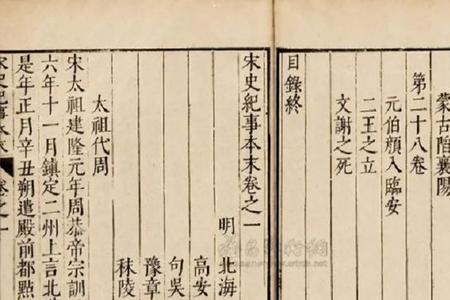 蒙古陷襄陽
第二十八卷
元伯顏入臨安
二王之立
文謝之死
目錄終
宋史紀事本末卷之一
明
北海
高安
句吳
豫章
秣陵
太祖代周
宋太祖建隆元年周恭帝宗訓
六年十一月鎮定二州上言北
是年正月辛丑朔遣殿前都點
宋史紀事本末
卷之一